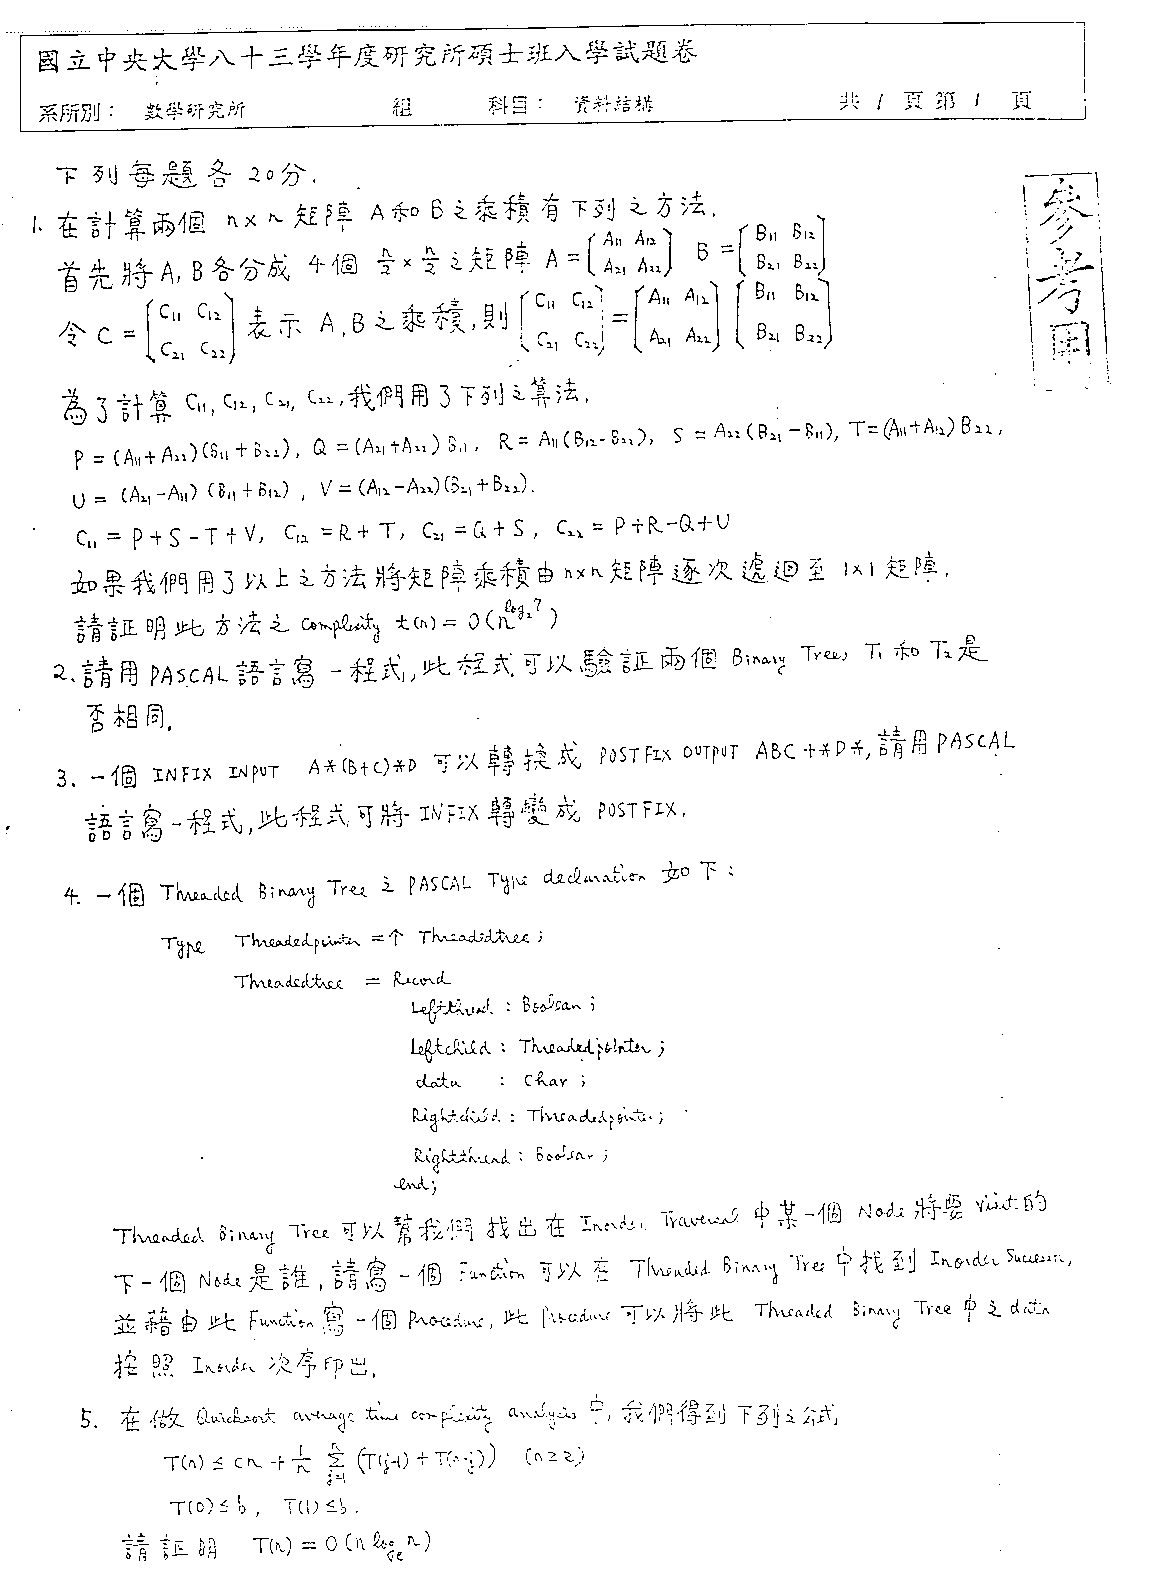 國立中央大學八十三學年度研究所碩士班入學試題卷
系所別： 數學研究所 組 科目： 資料結構 共 1 頁 第 1 頁
參考用
下列每題各20分.
1. 在計算兩個 n×n 矩陣 A和B之乘積有下列之方法.
首先將A,B各分成 4個 n/2×n/2 之矩陣 A=[A11 A12 A21 A22] B=[B11 B12 B21 B22]
令C=[C11 C12 C21 C22] 表示 A,B之乘積,則[C11 C12 C21 C22]=[A11 A12 A21 A22][B11 B12 B21 B22]
為了計算 C11, C12, C21, C22,我們用了下列之算法.
P=(A11+A22)(B11+B22), Q=(A21+A22)B11, R=A11(B12-B22), S=A22(B21-B11), T=(A11+A12)B22,
U=(A21-A11)(B11+B12), V=(A12-A22)(B21+B22).
C11=P+S-T+V, C12=R+T, C21=Q+S, C22=P+R-Q+U
如果我們用了以上之方法將矩陣乘積由n×n矩陣逐次遞迴至 1×1矩陣.
請証明此方法之 Complexity t(n)=O(n^log₂7)
2. 請用PASCAL語言寫一程式,此程式可以驗証兩個 Binary Trees T1 和 T2是
否相同.
3. 一個 INFIX INPUT A*(B+C)*D 可以轉換成 POSTFIX OUTPUT ABC+*D*,請用PASCAL
語言寫一程式,此程式可將 INFIX 轉變成 POSTFIX.
4. 一個 Threaded Binary Tree 之 PASCAL Type declaration 如下:
Type Threadedpointer =↑ Threadedtree;
Threadedtree = Record
Leftthread : Boolean;
Leftchild : Threadedpointer;
data : Char;
Rightchild : Threadedpointer;
Rightthread : Boolean;
end;
Threaded Binary Tree 可以幫我們找出在 Inorder Traversal 中某一個 Node將要 Visit的
下一個 Node是誰,請寫一個 Function可以在 Threaded Binary Tree中找到 Inorder Successor,
並藉由此 Function寫一個 Procedure, 此 Procedure可以將此 Threaded Binary Tree中之data
按照 Inorder 次序印出.
5. 在做 Quicksort average time complexity analysis 中,我們得到下列之公式
T(n)≤cn+1/n Σ_{j=1}^{n}(T(j-1)+T(n-j)) (n≥2)
T(0)≤b, T(1)≤b.
請証明 T(n)=O(n log_e n)